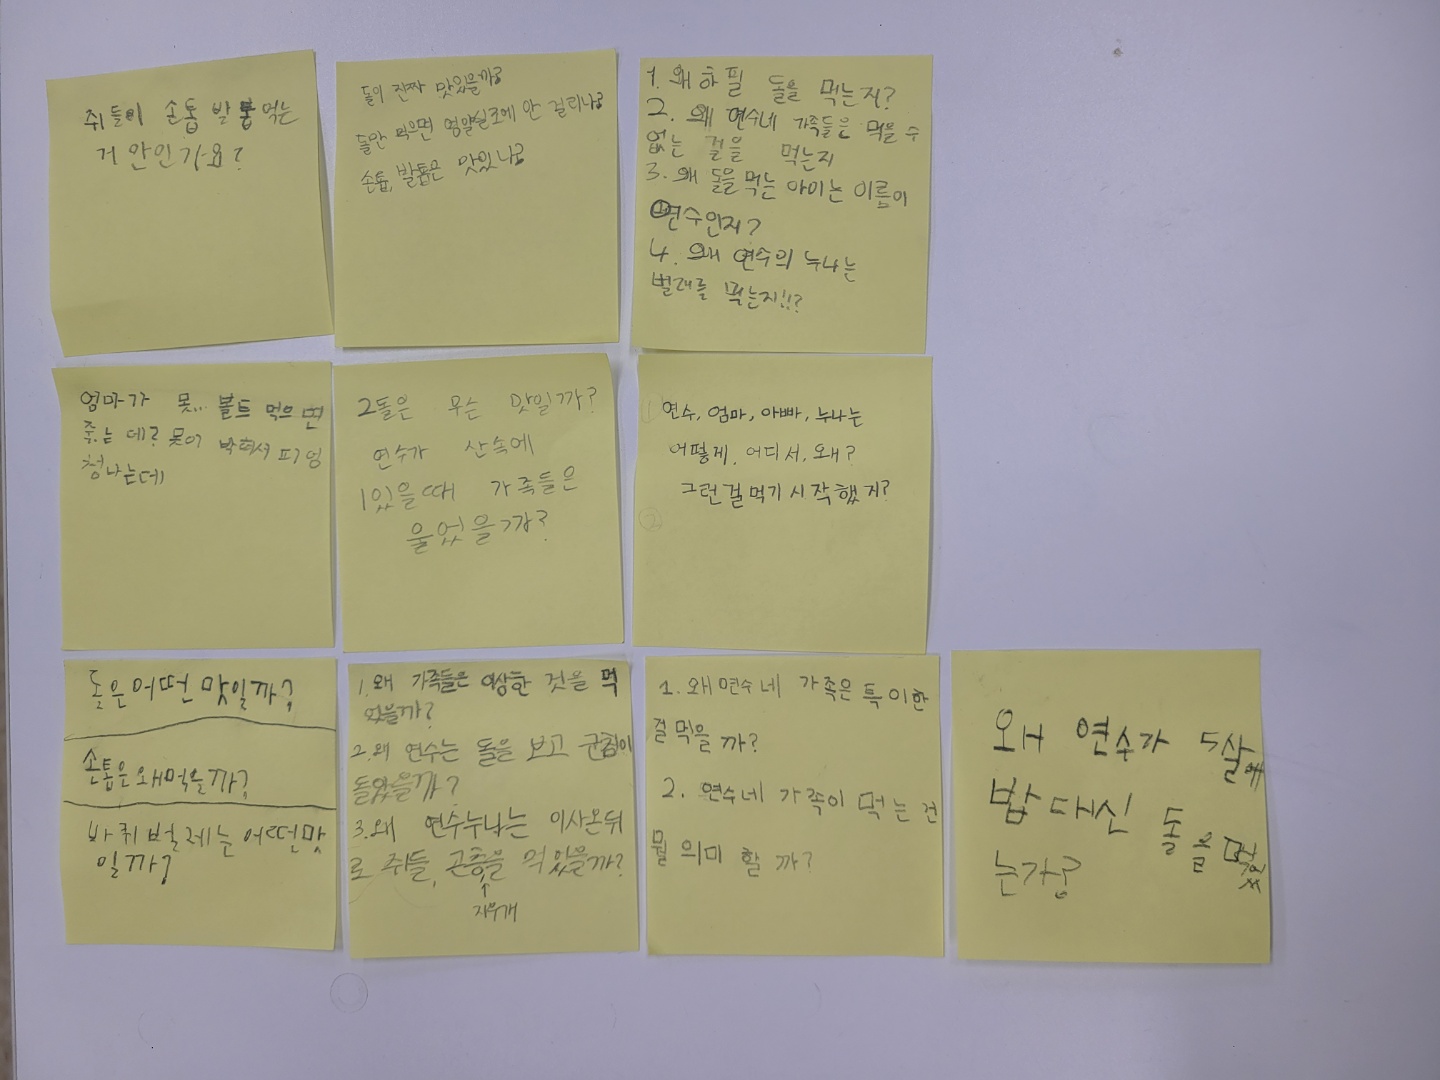 쥐들이 손톱 발톱 먹는
거 안인가요?
돌이 진짜 맛있을까?
돌만 먹으면 영양실조에 안 걸리나?
손톱, 발톱은 맛있나?
1. 왜 하필 돌을 먹는지?
2. 왜 연수네 가족들은 먹을 수
없는 걸을 먹는지
3. 왜 돌을 먹는 아이는 이름이
연수인지?
4. 왜 연수의 누나는
벌래를 먹는지!!?
엄마가 못... 볼트 먹으면
죽는 데? 못이 박혀서 피가 엄
청나는데
2돌은 무슨 맛일까?
연수가 산속에
1있을때 가족들은
울었을까?
연수, 엄마, 아빠, 누나는
어떻게, 어디서, 왜?
그런걸 먹기 시작했지?
돌은 어떤 맛일까?
손톱은 왜 먹을까?
바퀴벌레는 어떤맛
일까?
1. 왜 가족들은 이상한 것을 먹
었을까?
2. 왜 연수는 돌을 보고 군침이
돌았을까?
3. 왜 연수누나는 이사온뒤
로 쥐들, 곤충을 먹었을까?
↑
지우개
1. 왜 연수네 가족은 특이한
걸 먹을 까?
2. 연수네 가족이 먹는 건
뭘 의미 할 까?
왜 연수가 5살에
밥 대신 돌을 먹었
는가?